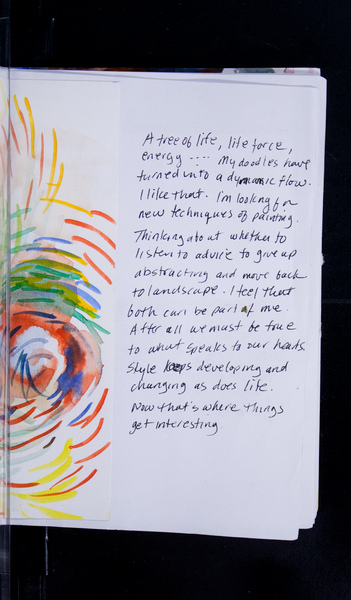 A tree of life, life force,
energy .... My doodles have
turned into a dynamic flow.
I like that. I'm looking for
new techniques of painting.
Thinking about whether to
listen to advice to give up
abstracting and move back
to landscape. I feel that
both can be part of me.
After all we must be true
to what speaks to our hearts.
Style keeps developing and
changing as does life.
Now that's where things
get interesting